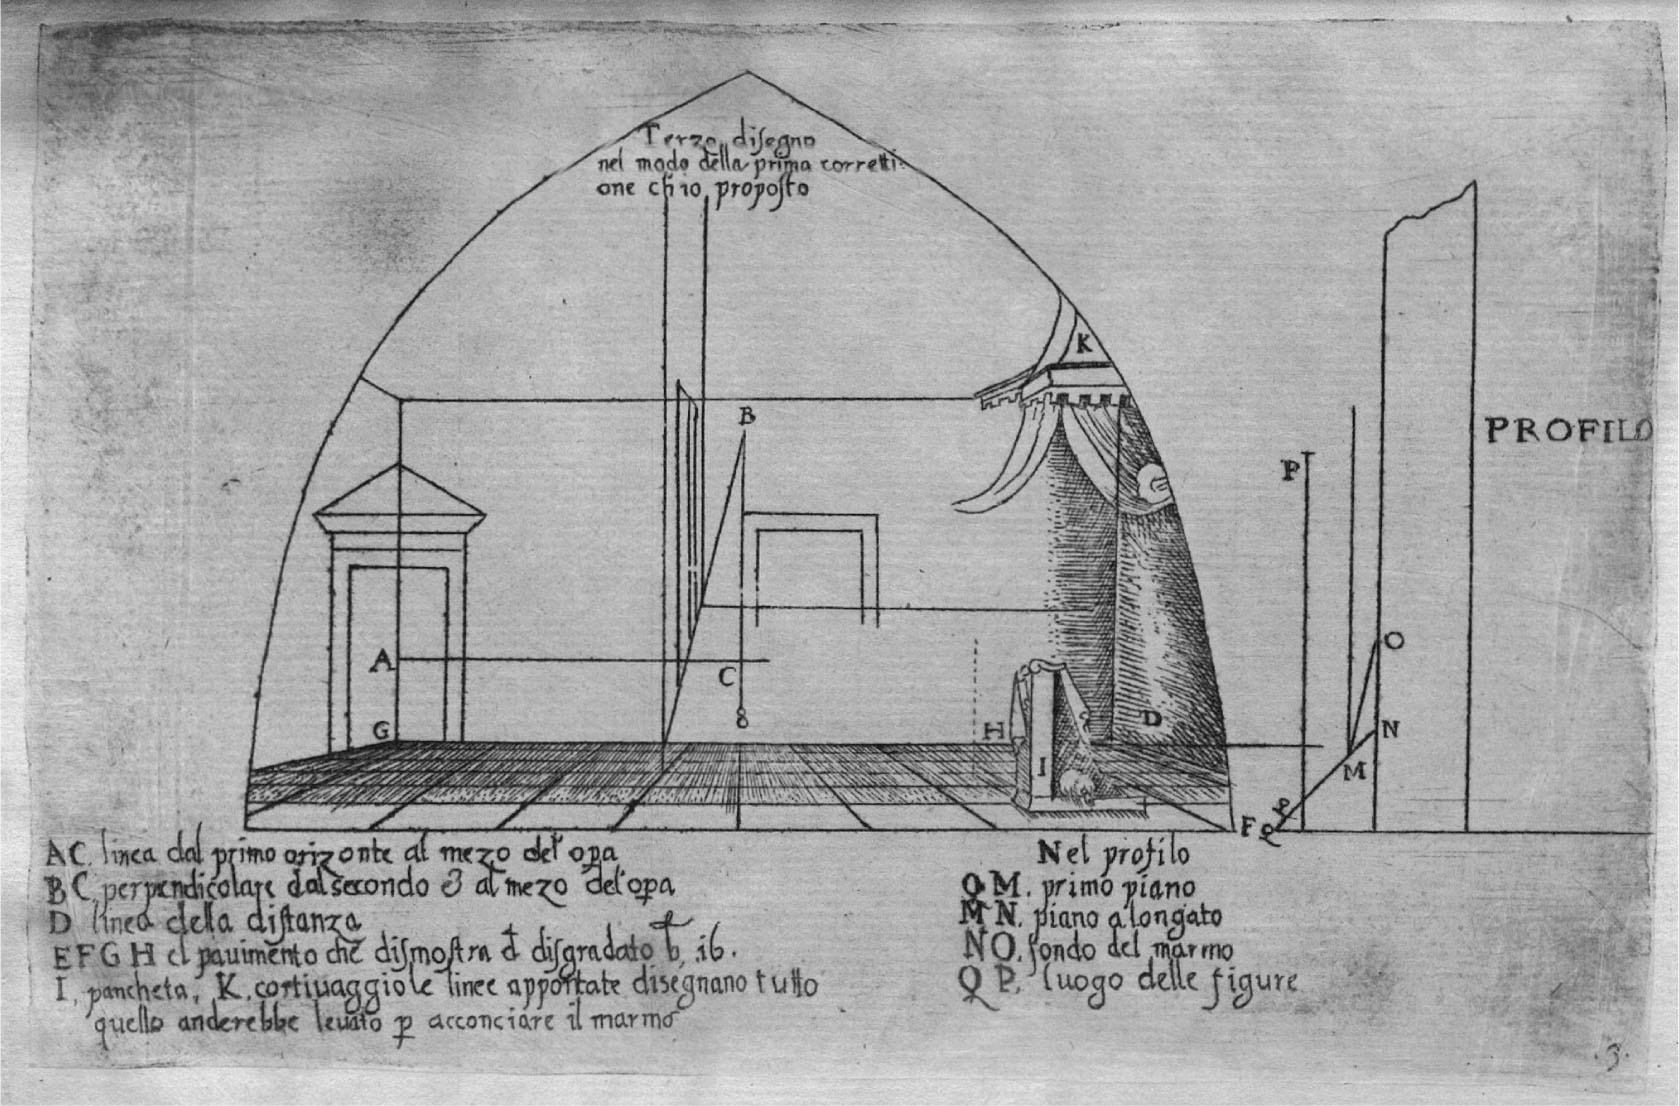 Terzo disegno
nel modo della prima corretti
one ch io proposto
K
B
PROFILO
P
A
C
8
G
H
D
I
O
N
M
F
Q
AC. linea dal primo orizonte al mezo del opa
BC. perpendicolare dal secondo al mezo del opa
D linea della distanza
EFGH el pauimento che dismostra disgradato b, 16.
I, pancheta, K. cortiuaggio le linee apportate disegnano tutto
quello anderebbe leuato p acconciare il marmo
Nel profilo
QM. primo piano
MN. piano alongato
NO. fondo del marmo
QP. luogo delle figure
.3.